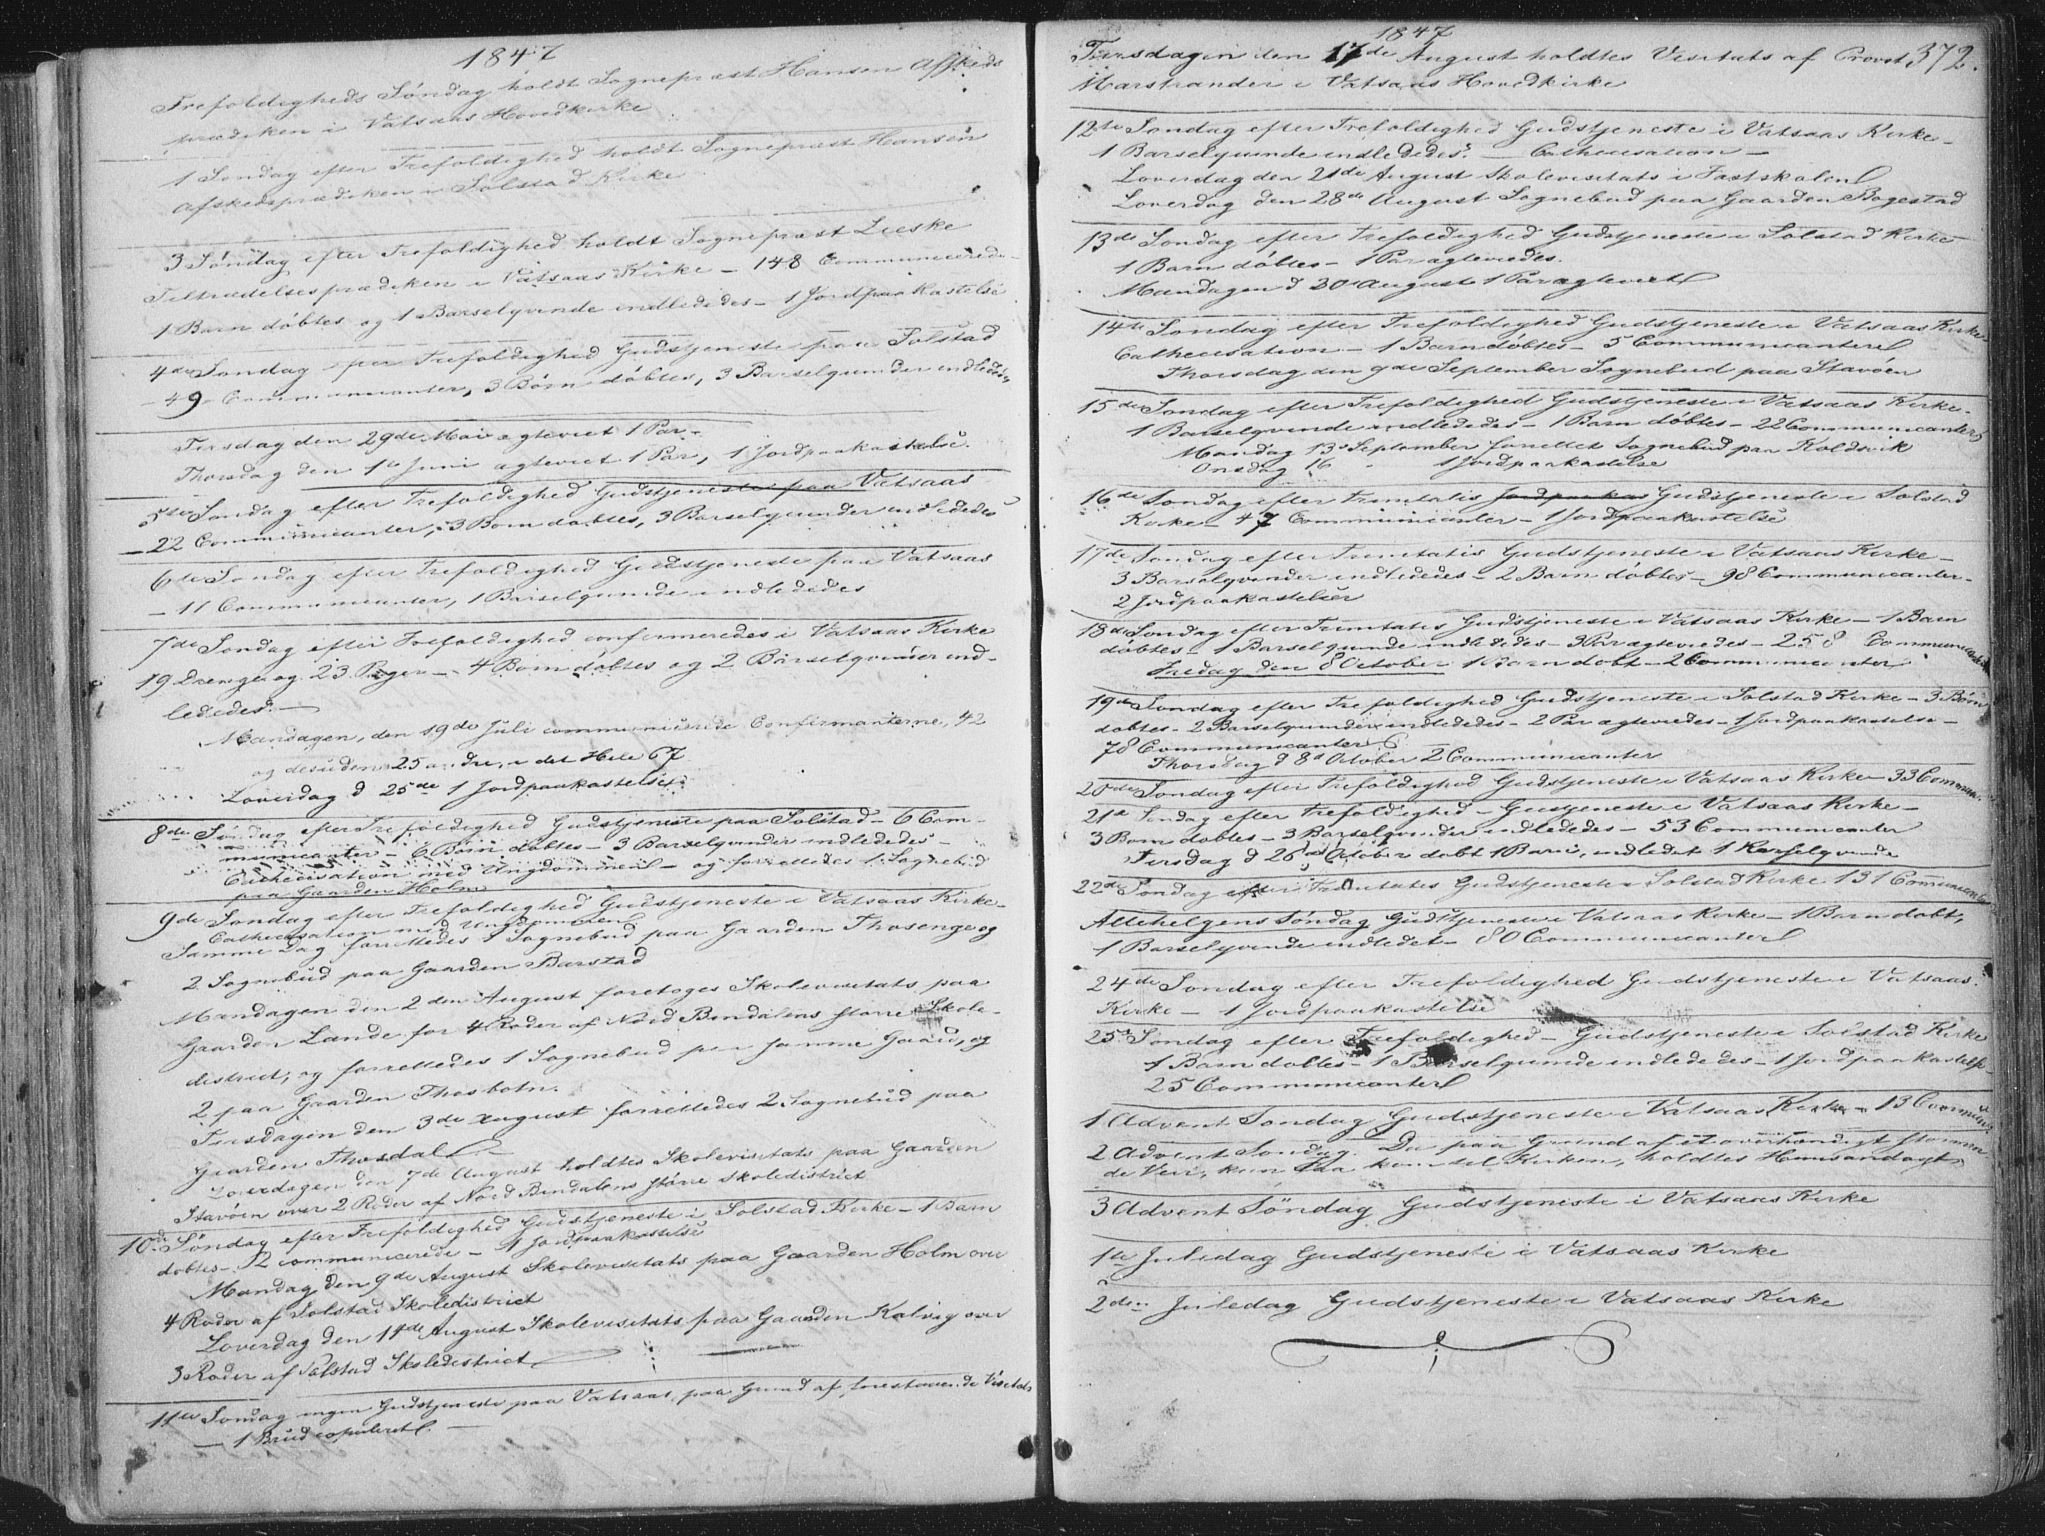 1847
Trefoldigheds Søndag holdt Sognepræst Hansen Afskeds
prædiken i Vatsaas Hovedkirke
1 Søndag efter Trefoldighed holdt Sognepræst Hansen
Afskedsprædiken i Solstad Kirke
3 Søndag efter Trefoldighed holdt Sognepræst
Tiltrædelsesprædiken i Vatsaas Kirke – 148 Communicerede
1 Barn døbtes og 1 Barselqvinde indlededes – 1 Jordpaakastelse
4de Søndag efter Trefoldighed Gudstjeneste paa Solstad
– 49 Communicanter, 3 Børn døbtes, 3 Barselqvinder indlededes
Tirsdag den 29de Mai ægteviet 1 Par –
Thorsdag den 1te Juni ægteviet 1 Par, 1 Jordpaakastelse.
5te Søndag efter Trefoldighed Gudstjeneste paa Vatsaas
– 22 Communicanter, 3 Børn døbtes, 3 Barselqvinder indlededes
6te Søndag efter Trefoldighed Gudstjeneste paa Vatsaas
– 11 Communicanter, 1 Barselqvinde indlededes
7de Søndag efter Trefoldighed confirmeredes i Vatsaas Kirke
19 Drenge og 23 Piger – 4 Børn døbtes og 2 Barselqvinder ind-
lededes. –
Mandagen, den 19de Juli communicerede Confirmanterne, 42
og desuden 25 andre, i det Hele 67
Løverdag d 25de 1 Jordpaakastelse
8de Søndag efter Trefoldighed Gudstjeneste paa Solstad – 6 Com-
municanter – 6 Børn døbtes – 3 Barselqvinder indlededes –
Cathecisation med Ungdommen – og forrettedes 1 Sognebud
paa Gaarden Holm
9de Søndag efter Trefoldighed Gudstjeneste i Vatsaas Kirke –
Cathecisation med Ungdommen
Samme Dag forrettedes 3 Sognebud paa Gaarden Thosenge og
2 Sognebud paa Gaarden Barstad
Mandagen den 2den August foretoges Skolevisitats paa
Gaarden Lande for 4 Roder af Nord Bindalens større Skole-
district, og forrettedes 1 Sognebud per samme Gaard, og
2 paa Gaarden Thosbotn.
Tirsdagen den 3de August forrettedes 2 Sognebud paa
Gaarden Thosdal
Løverdagen den 7de August holdtes Skolevisitats paa Gaarden
Stavøen over 2 Roder af Nord Bindalens større Skoledistrict
10de Søndag efter Trefoldighed Gudstjeneste i Solstad Kirke – 1 Barn
døbtes – 2 communicerede – 1 Jordpaakastelse
Mandag den 9de August Skolevisitats paa Gaarden Holm over
4 Roder af Solstad Skoledistrict
Løverdag den 14de August Skolevisitats paa Gaarden Kalvig over
3 Roder af Solstad Skoledistrict
11te Søndag ingen Gudstjeneste paa Vatsaas, paa Grund af forestaaende Visitats
– 1 Brud copuleret. –
1847
372.
Tirsdagen den 17de August holdtes Visitats af Provst
Marstrander i Vatsaas Hovedkirke
12te Søndag efter Trefoldighed Gudstjeneste i Vatsaas Kirke –
1 Barselqvinde indlededes. – Cathecisation –
Løverdag den 21de August Skolevisitats i Fastskolen
Løverdag den 28de August Sognebud paa Gaarden Bøgestad
13de Søndag efter Trefoldighed Gudstjeneste i Solstad Kirke
1 Barn døbtes – 1 Par ægteviedes.
Mandagen d 30 August 1 Par ægteviet
14te Søndag efter Trefoldighed Gudstjeneste i Vatsaas Kirke
Cathecisation – 1 Barn døbtes – 5 Communicanter
Thorsdag den 9de September Sognebud paa Stavøen
15de Søndag efter Trefoldighed Gudstjeneste i Vatsaas Kirke –
1 Barselqvinde indlededes – 1 Barn døbtes – 22 Communicanter
Mandag 13 September forrettet Sognebud paa Koldsvik
Onsdag 16 1 Jordpaakastelse
16de Søndag efter Trinitatis Jordpaakas Gudstjeneste i Solstad
Kirke – 47 Communicanter – 1 Jordpaakastelse
17de Søndag efter Trinitatis Gudstjeneste i Vatsaas Kirke –
3 Barselqvinder indlededes – 2 Børn døbtes – 98 Communicanter –
2 Jordpaakastelser
18de Søndag efter Trinitatis Gudstjeneste i Vatsaas Kirke – 1 Barn
døbtes – 1 Barselqvinde indlededes – 3 Par ægteviedes – 258 Communicanter
Fredag den 8 October 1 Barn døbt – 2 Communicanter
19de Søndag efter Trefoldighed Gudstjeneste i Solstad Kirke – 3 Børn
døbtes – 2 Barselqvinder indlededes – 2 Par ægteviedes – 1 Jordpaakastelse –
78 Communicanter
Thorsdag d 8d October 2 Communicanter
20de Søndag efter Trefoldighed Gudstjeneste i Vatsaas Kirke – 33 Commun.
21de Søndag efter Trefoldighed – Gustjeneste i Vatsaas Kirke –
3 Børn døbtes – 3 Barselqvinder indlededes – 53 Communicanter
Tirsdag d 26de October døbt 1 Barn, indledet 1 Barselqvinde
22de Søndag efter Trinitatis Gudstjeneste i Solstad Kirke 131 Communicanter
Allehelgens Søndag Gudstjeneste i Vatsaas Kirke – 1 Barn døbt,
1 Barselqvinde indledet – 80 Communicanter
24de Søndag efter Trefoldighed Gudstjeneste i Vatsaas
Kirke – 1 Jordpaakastelse
25de Søndag efter Trefoldighed – Gudstjeneste i Solstad Kirke
1 Barn døbtes – 1 Barselqvinde indlededes – 1 Jordpaakastelse –
25 Communicanter
1 Advent Søndag Gudstjeneste i Vatsaas Kirke – 13 Commun.
2 Advent Søndag. Da paa Grund af et overhændigt stormen
de Veir, kun faa kom til Kirken, holdtes Huusandagt
3 Advent Søndag Gudstjeneste i Vatsaas Kirke
1te Juledag Gudstjeneste i Vatsaas Kirke
2den Juledag Gudstjeneste i Vatsaas Kirke